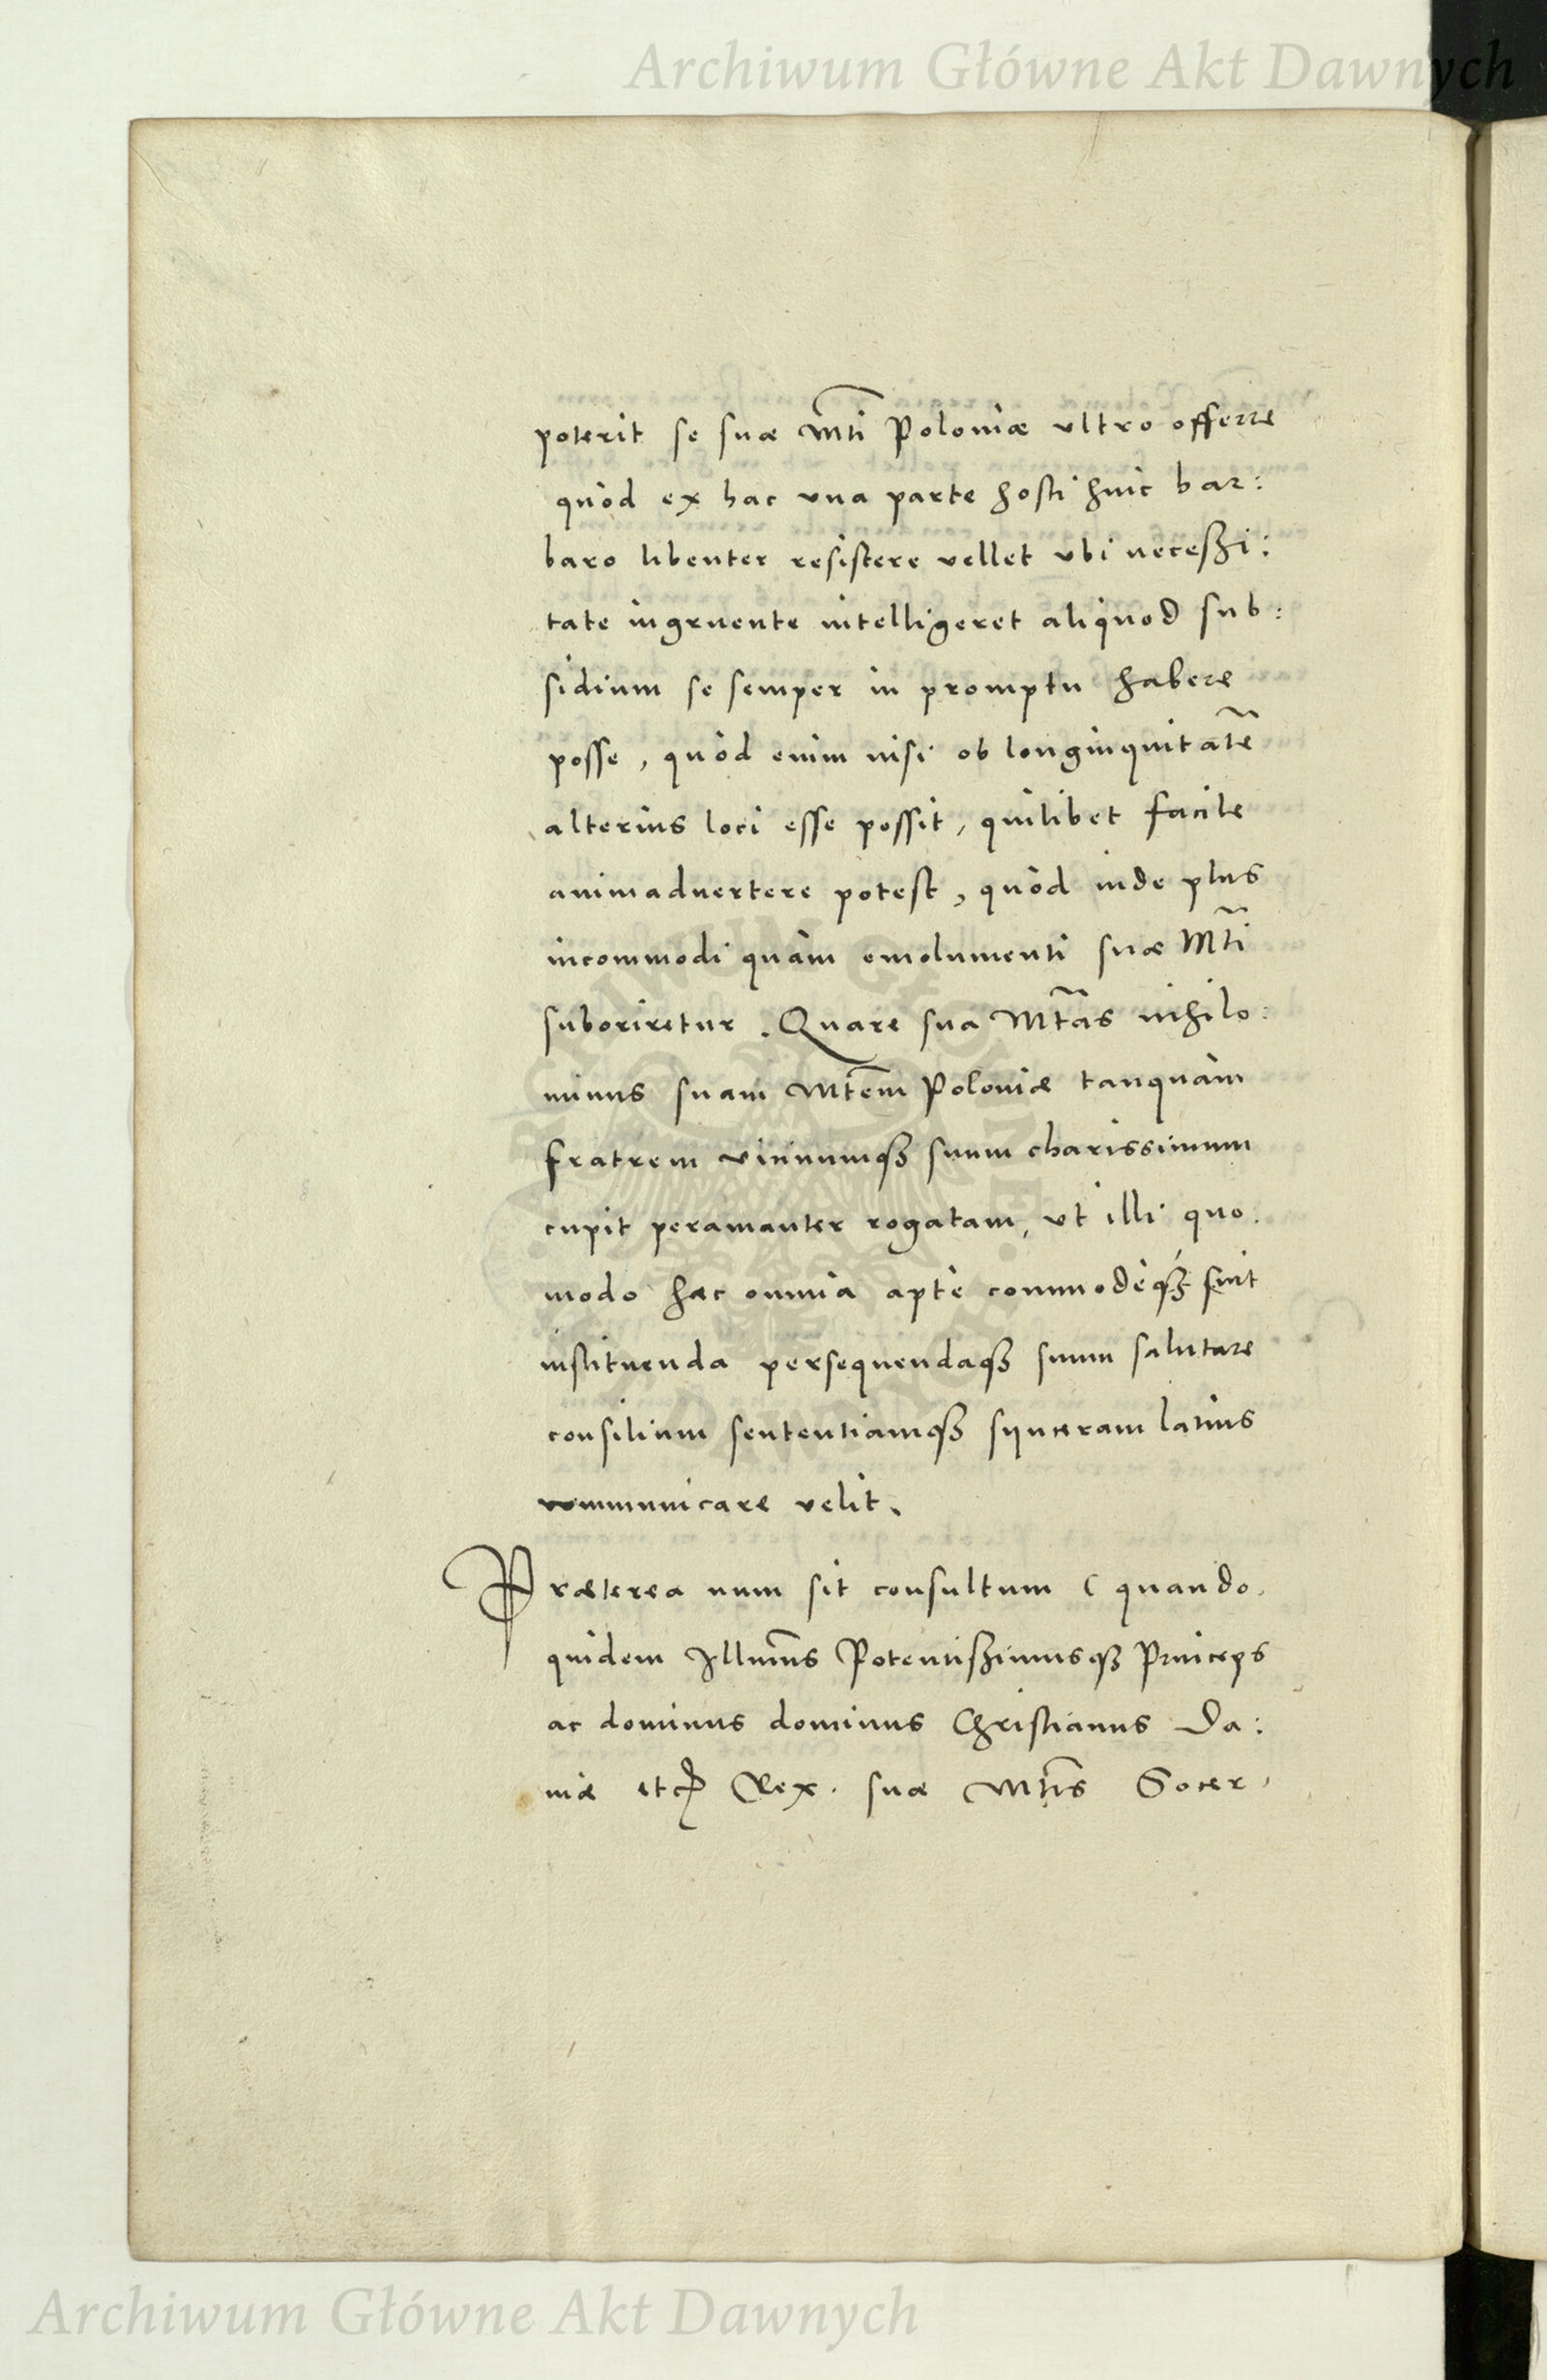 Archiwum Główne Akt Dawnych
poterit se suæ Mti Poloniæ vltro offerre
quòd ex hac vna parte hosti huic bar:
baro libenter resistere vellet vbi neceßi:
tate ingruente intelligeret aliquod sub:
sidium se semper in promptu habere
posse, quòd enim nisi ob longinquitatē
alterius loci esse possit, quilibet facile
animaduertere potest, quòd inde plus
incommodi quàm emolumenti suæ Mti
suboriretur. Quare sua Mtas nihilo:
minus suam Mtem Poloniæ tanquàm
fratrem vicinumqȝ suum charissimum
cupit peramanter rogatam, vt illi quo.
modo hæc omnia aptè commodèqȝ sint
instituenda persequendaqȝ suum salutare
consilium sententiamqȝ synceram latius
communicare velit.
Præterea num sit consultum ( quando.
quidem Illumns Potentißimusqȝ Princeps
ac dominus dominus Christianus Da:
niæ etc Rex. suæ Mtis Socer,
Archiwum Główne Akt Dawnych